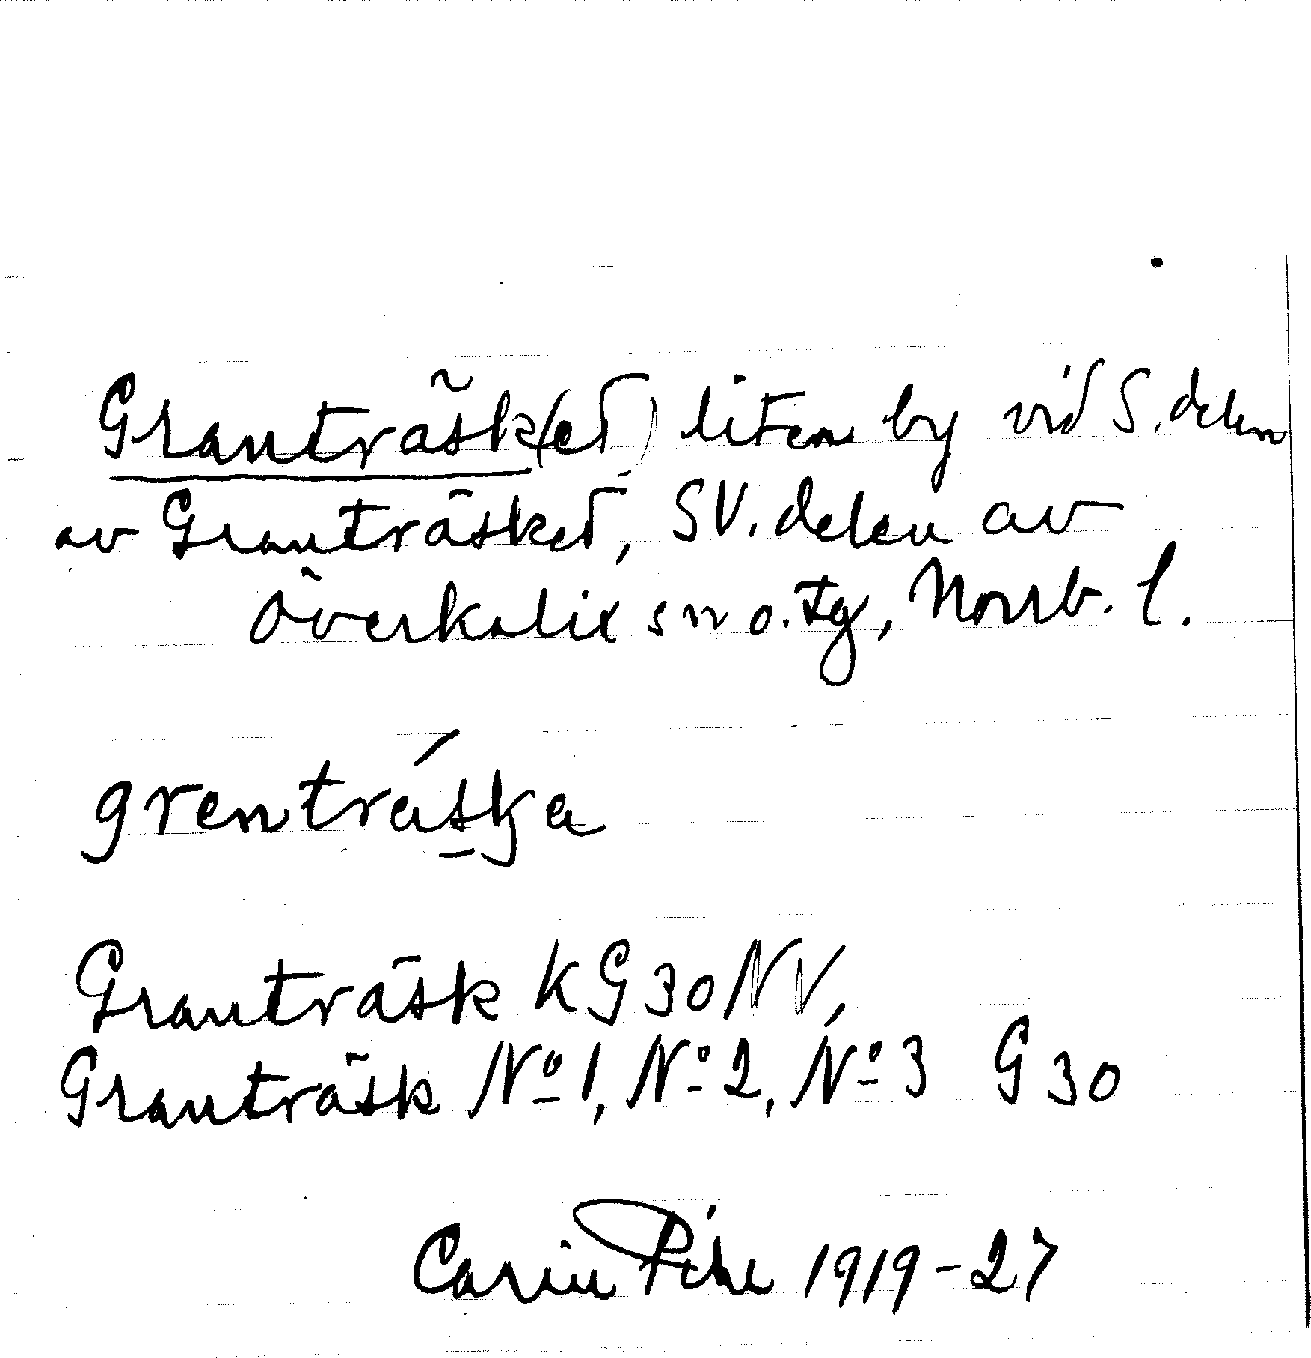 Granträsk(et) liten by vid S. delen
av Granträsket, SV. delen av
Överkalix sn o. tg, Norrb. l.
grentráska
Granträsk KG 30 NV,
Granträsk No 1, No 2, No 3 G 30
Carin Pihl 1919-27